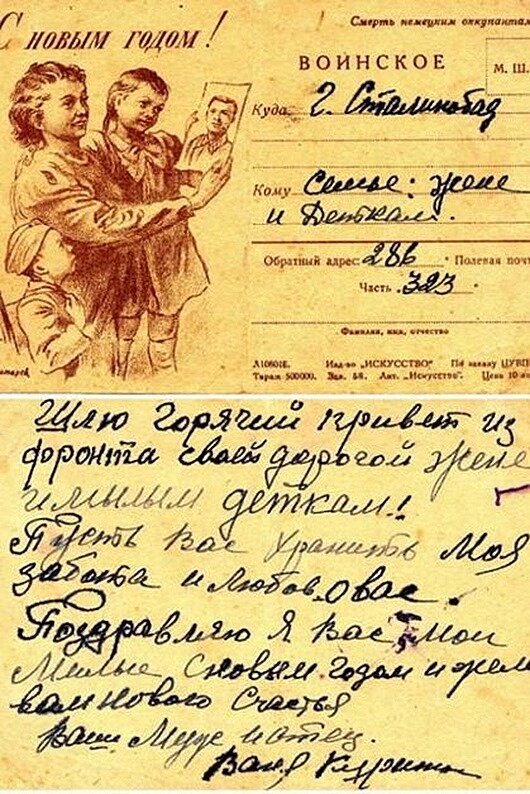 С НОВЫМ ГОДОМ!
Смерть немецким оккупантам
ВОИНСКОЕ
М. Ш.
Куда г. Сталинобад
Кому Семье: жене
и Деткам.
Обратный адрес: 286 Полевая почт
Часть 323
Фамилия, имя, отчество
А10801Е. Изд-во „ИСКУССТВО" По заказу ЦУВП
Тираж 500000. Зак. Лит. „Искусство". Цена 10
Шлю горячий привет из
фронта своей дорогой жене
и милым деткам!
Пусть вас хранить Моя
забота и любов, о вас.
Поздравляю Я вас Мои
Милые с новым годом и жел
вам нового счастья
Ваш Муж и отец.
Ваня